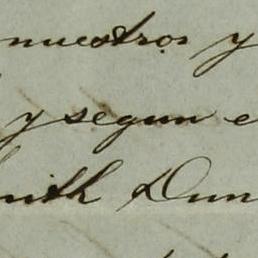 nuestros y
y segun e
mith Dun